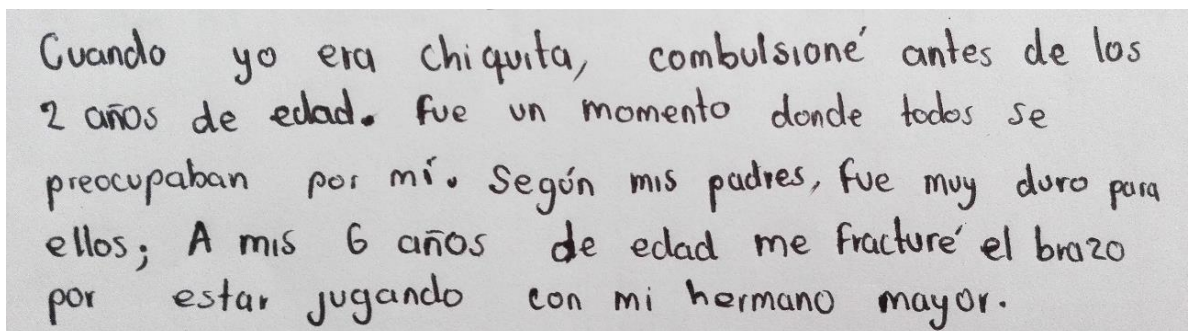 Cuando yo era chiquita, combulsioné antes de los
2 años de edad. fue un momento donde todos se
preocupaban por mí. Según mis padres, fue muy duro para
ellos; A mis 6 años de edad me fracturé el brazo
por estar jugando con mi hermano mayor.